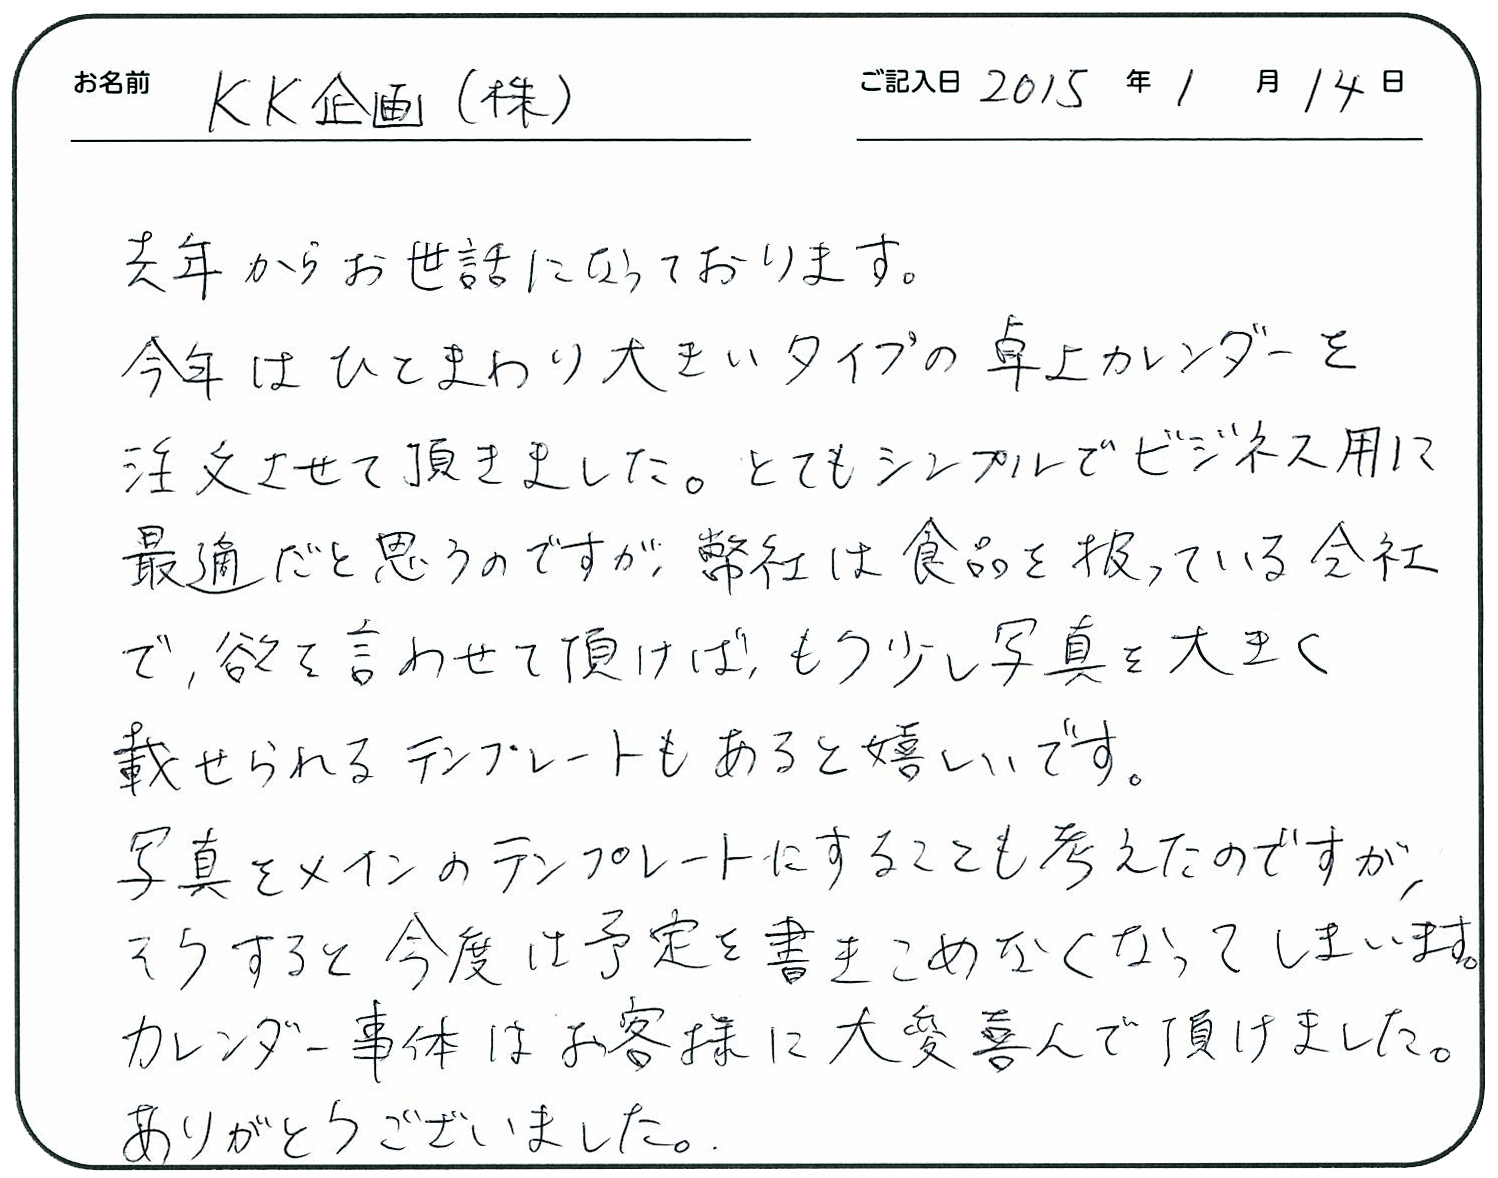 お名前 KK企画(株) ご記入日 2015 年 1 月 14 日
去年からお世話になっております。
今年はひとまわり大きいタイプの卓上カレンダーを
注文させて頂きました。とてもシンプルでビジネス用に
最適だと思うのですが、弊社は食品を扱っている会社
で、欲を言わせて頂けば、もう少し写真を大きく
載せられるテンプレートもあると嬉しいです。
写真をメインのテンプレートにすることも考えたのですが、
そうすると今度は予定を書きこめなくなってしまいます。
カレンダー事体はお客様に大変喜んで頂けました。
ありがとうございました。